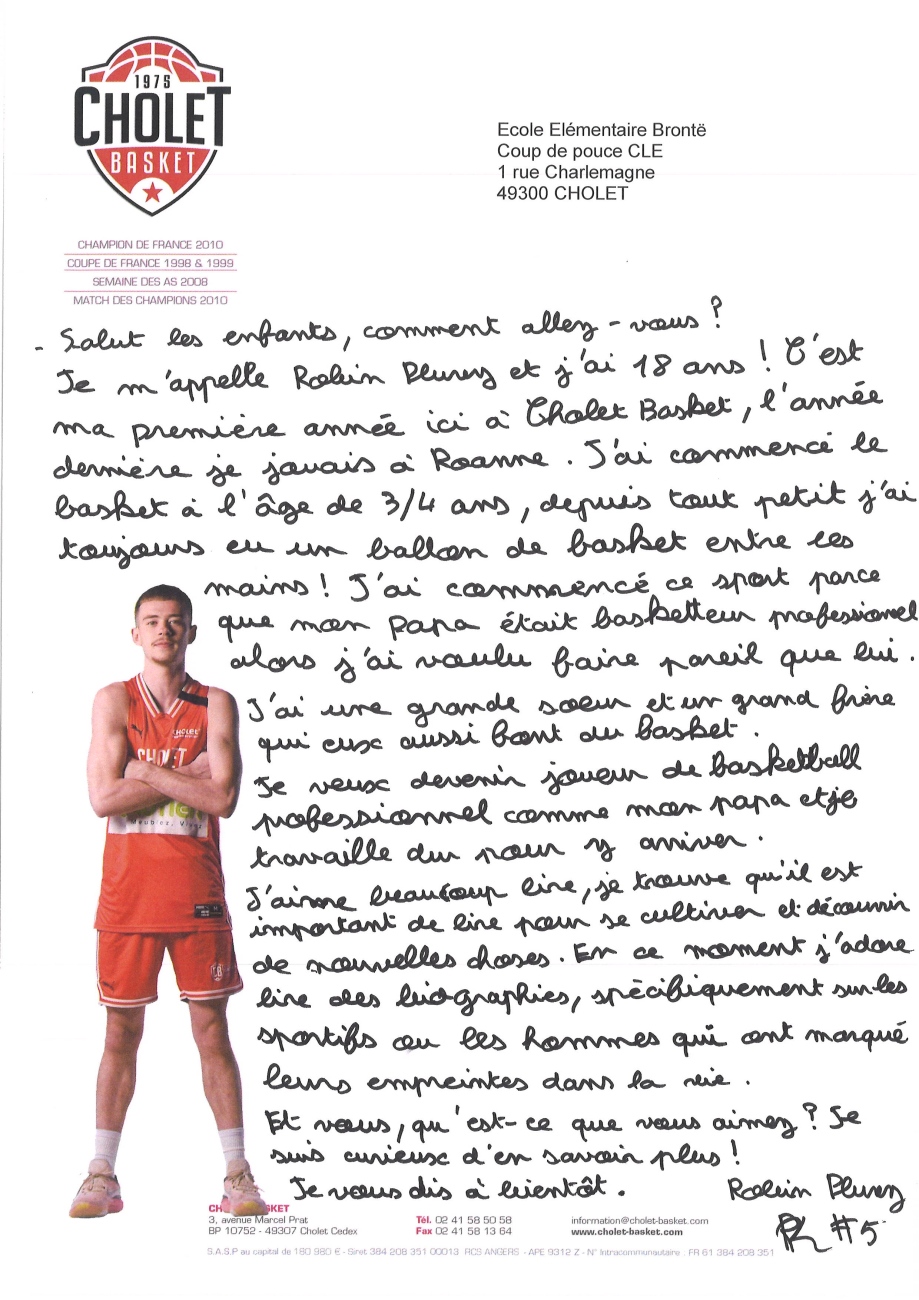 1975
CHOLET
BASKET
Ecole Elémentaire Brontë
Coup de pouce CLE
1 rue Charlemagne
49300 CHOLET
CHAMPION DE FRANCE 2010
COUPE DE FRANCE 1998 & 1999
SEMAINE DES AS 2008
MATCH DES CHAMPIONS 2010
- Salut les enfants, comment allez-vous ?
Je m'appelle Robin Plurez et j'ai 18 ans ! C'est
ma première année ici à Cholet Basket, l'année
dernière je jouais à Roanne. J'ai commencé le
basket à l'âge de 3/4 ans, depuis tout petit j'ai
toujours eu un ballon de basket entre les
mains ! J'ai commencé ce sport parce
que mon papa était basketteur professionnel
alors j'ai voulu faire pareil que lui.
J'ai une grande soeur et un grand frère
qui eux aussi font du basket.
Je veux devenir joueur de basketball
professionnel comme mon papa et je
travaille dur pour y arriver.
J'aime beaucoup lire, je trouve qu'il est
important de lire pour se cultiver et découvrir
de nouvelles choses. En ce moment j'adore
lire des biographies, spécifiquement sur les
sportifs ou les hommes qui ont marqué
leurs empreintes dans la vie.
Et vous, qu'est-ce que vous aimez ? Je
suis curieux d'en savoir plus !
Je vous dis à bientôt. Robin Plurez
#5
CHOLET
3, avenue Marcel Prat Tél. 02 41 58 50 58 information@cholet-basket.com
BP 10752 - 49307 Cholet Cedex Fax 02 41 58 13 64 www.cholet-basket.com
S.A.S.P au capital de 160 980 € - Siret 384 208 351 00013 RCS ANGERS - APE 9312 Z - N° Intracommunautaire : FR 61 384 208 351